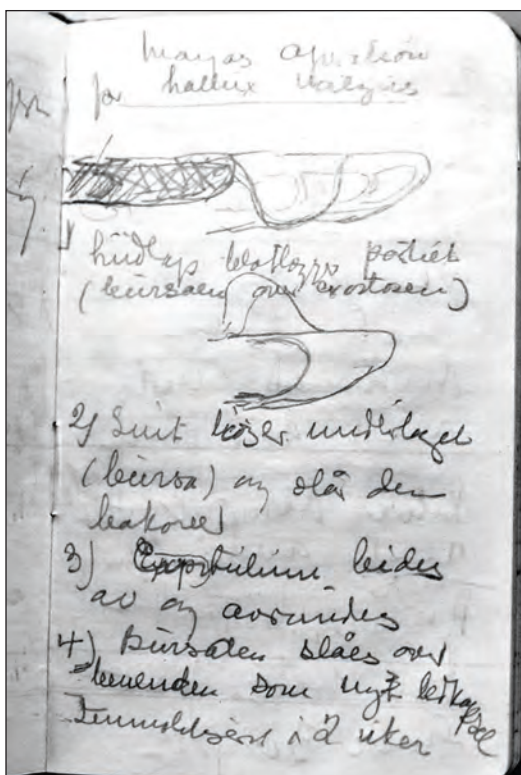 Mayos operation
for hallux valgus
hudlap blotlegge partiet
(bursaen over exostosen)
2) Snit løser underlaget
(bursa) og slår den
bakover
3) Capitulum beides
av og avrundes
4) Bursaen slåes over
benenden som nyt
i 2 uker